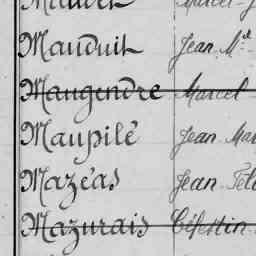 Mauduit Jean Mie
Maugendre Marcel
Maupilé Jean Mar
Mazéas Jean Féli
Mazurais Célestin